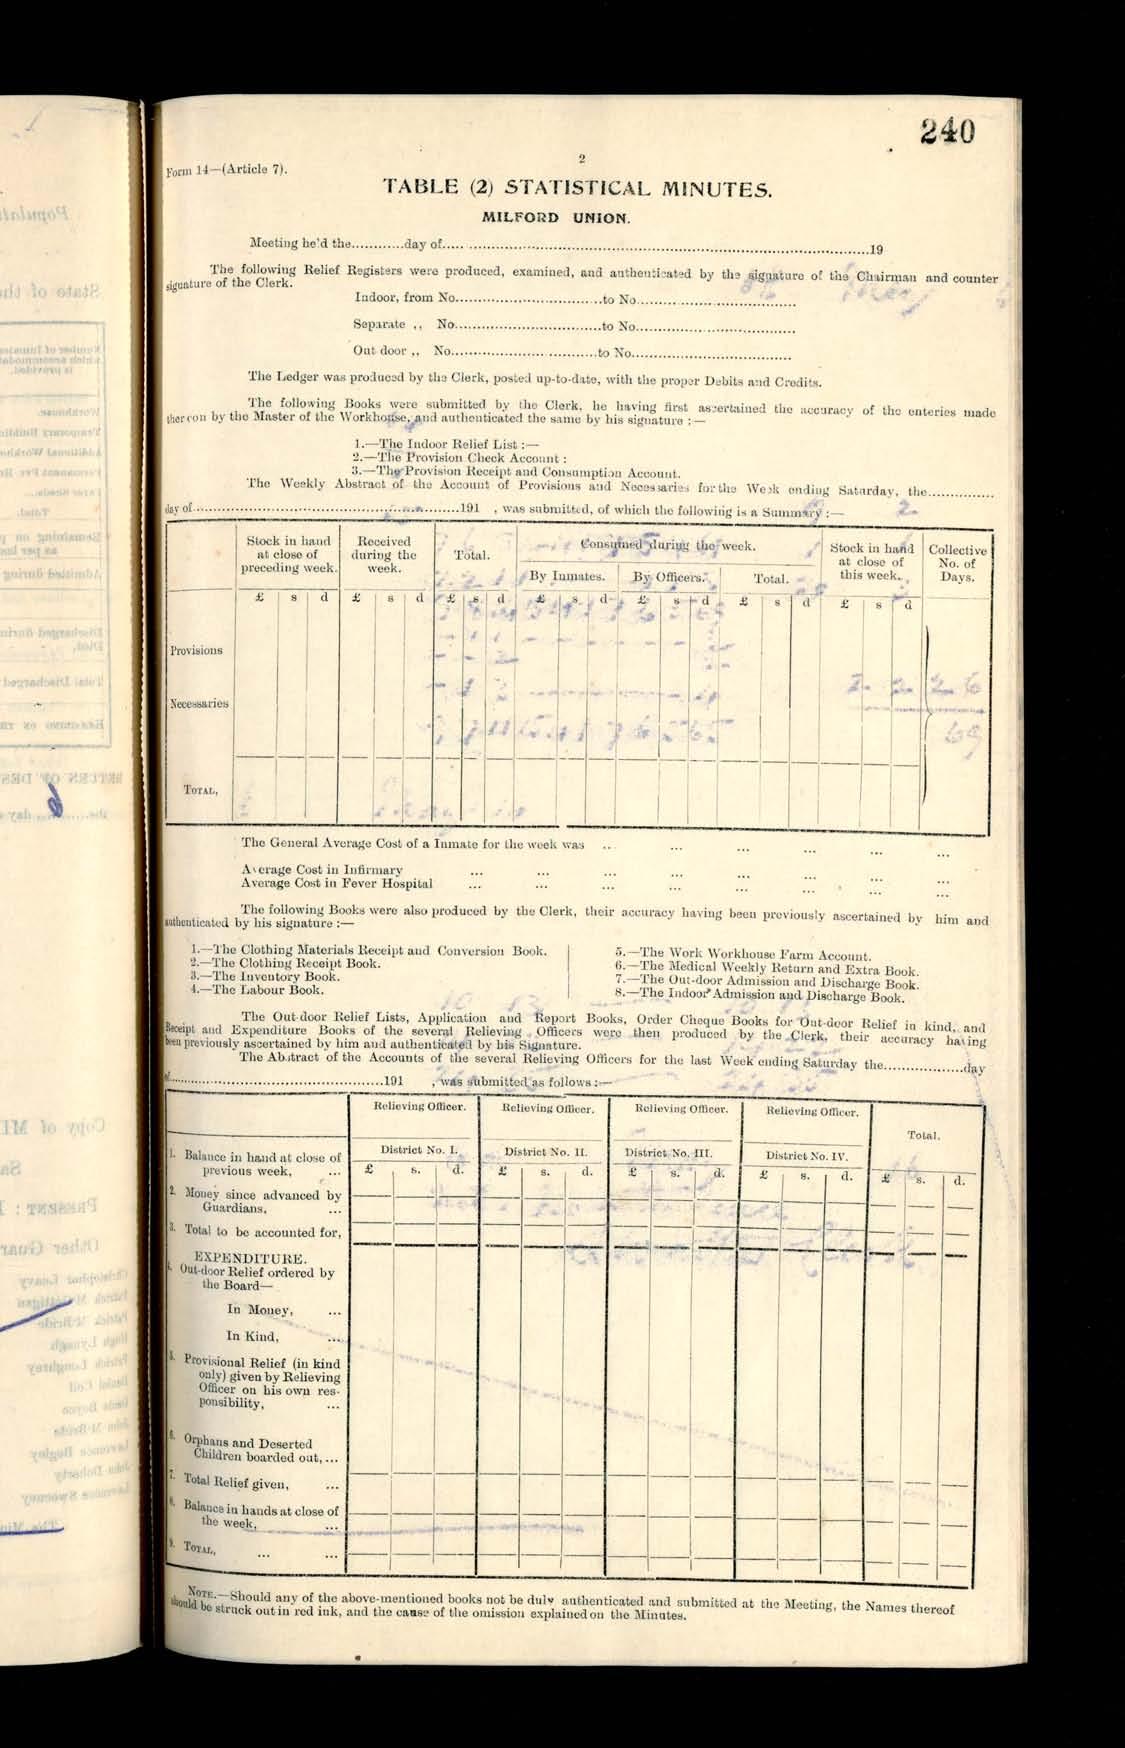 240
Form 14—(Article 7).
2
TABLE (2) STATISTICAL MINUTES.
MILFORD UNION.
Meeting he'd the............day of..........................................19
The following Relief Registers were produced, examined, and authenticated by the signature of the Chairman and counter
signature of the Clerk.
Indoor, from No..............................to No..............................
Separate ,, No..............................to No..............................
Out door ,, No..............................to No..............................
The Ledger was produced by the Clerk, posted up-to-date, with the proper Debits and Credits.
The following Books were submitted by the Clerk, he having first ascertained the accuracy of the enteries made
thereon by the Master of the Workhouse, and authenticated the same by his signature :—
1.—The Indoor Relief List :—
2.—The Provision Check Account :
3.—The Provision Receipt and Consumption Account.
The Weekly Abstract of the Account of Provisions and Necessaries for the Week ending Saturday, the...............
day of..............................191 , was submitted, of which the following is a Summary :—
Stock in hand at close of preceding week. Received during the week. Total. Consumed during the week. Stock in hand at close of this week. Collective No. of Days.
By Inmates. By Officers. Total.
£ s d £ s d £ s d £ s d £ s d £ s d £ s d
Provisions
Necessaries
TOTAL,
The General Average Cost of a Inmate for the week was ... ... ... ... ...
Average Cost in Infirmary ... ... ... ... ... ... ... ...
Average Cost in Fever Hospital ... ... ... ... ... ... ... ...
The following Books were also produced by the Clerk, their accuracy having been previously ascertained by him and
authenticated by his signature :—
1.—The Clothing Materials Receipt and Conversion Book.
2.—The Clothing Receipt Book.
3.—The Inventory Book.
4.—The Labour Book.
5.—The Work Workhouse Farm Account.
6.—The Medical Weekly Return and Extra Book.
7.—The Out-door Admission and Discharge Book.
8.—The Indoor Admission and Discharge Book.
The Out-door Relief Lists, Application and Report Books, Order Cheque Books for Out-door Relief in kind, and
Receipt and Expenditure Books of the several Relieving Officers were then produced by the Clerk, their accuracy having
been previously ascertained by him and authenticated by his Signature.
The Abstract of the Accounts of the several Relieving Officers for the last Week ending Saturday the..................day
of..............................191 , was submitted as follows :—
Relieving Officer. Relieving Officer. Relieving Officer. Relieving Officer. Total.
District No. I. District No. II. District No. III. District No. IV.
£ s. d. £ s. d. £ s. d. £ s. d. £ s. d.
1. Balance in hand at close of
previous week, ...
2. Money since advanced by
Guardians, ...
3. Total to be accounted for,
EXPENDITURE.
4. Out-door Relief ordered by
the Board—
In Money, ...
In Kind, ...
5. Provisional Relief (in kind
only) given by Relieving
Officer on his own res-
ponsibility, ...
6. Orphans and Deserted
Children boarded out, ...
7. Total Relief given, ...
8. Balance in hands at close of
the week, ...
9. TOTAL, ... ...
NOTE.—Should any of the above-mentioned books not be duly authenticated and submitted at the Meeting, the Names thereof
should be struck out in red ink, and the cause of the omission explained on the Minutes.